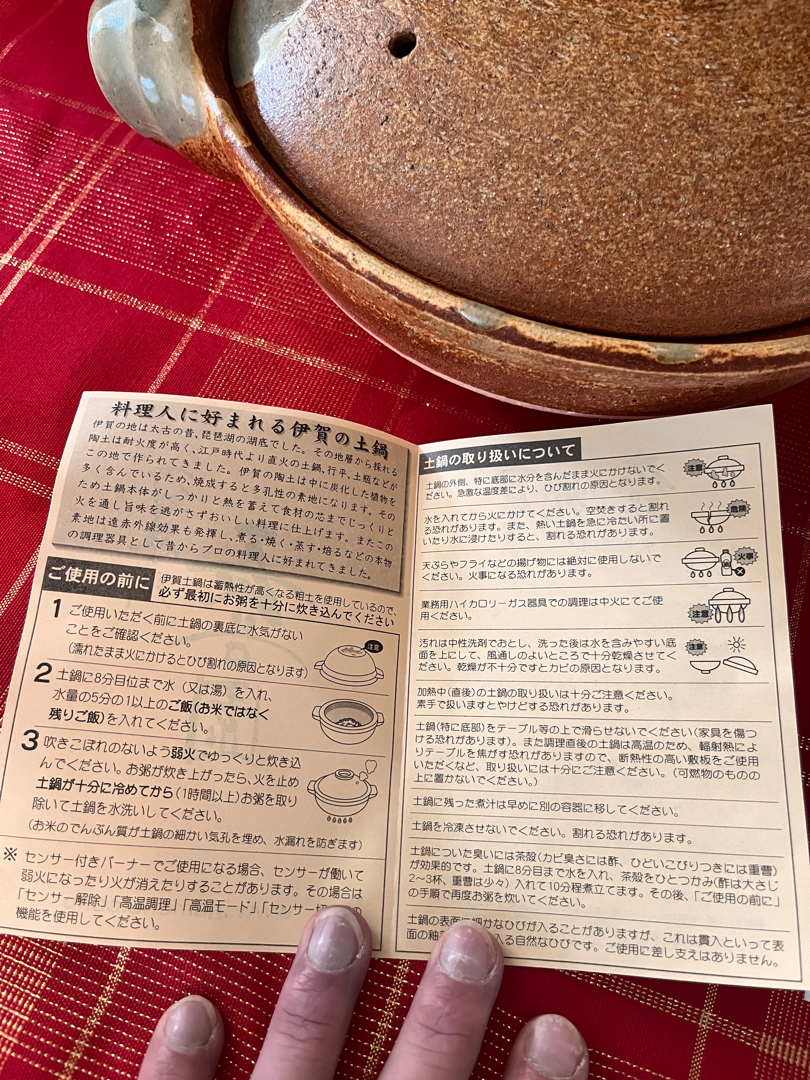 料理人に好まれる伊賀の土鍋
伊賀の地は太古の昔、琵琶湖の湖底でした。その地層から採れる
陶土は耐火度が高く、江戸時代より直火の土鍋、行平、土瓶などが
この地で作られてきました。伊賀の陶土は中に炭化した植物を
多く含んでいるため、焼成すると多孔性の素地になります。その
ため土鍋本体がしっかりと熱を蓄えて食材の芯までじっくりと
火を通し旨味を逃がさずおいしい料理に仕上げます。またこの
素地は遠赤外線効果も発揮し、煮る・焼く・蒸す・焙るなどの本物
の調理器具として昔からプロの料理人に好まれてきました。
ご使用の前に
伊賀土鍋は蓄熱性が高くなる粗土を使用しているので、
必ず最初にお粥を十分に炊き込んでください
1 ご使用いただく前に土鍋の裏底に水気がない
ことをご確認ください。
(濡れたまま火にかけるとひび割れの原因となります)
注意
2 土鍋に8分目位まで水(又は湯)を入れ、
水量の5分の1以上のご飯(お米ではなく
残りご飯)を入れてください。
3 吹きこぼれのないよう弱火でゆっくりと炊き込
んでください。お粥が炊き上がったら、火を止め
土鍋が十分に冷めてから(1時間以上)お粥を取り
除いて土鍋を水洗いしてください。
(お米のでんぷん質が土鍋の細かい気孔を埋め、水漏れを防ぎます)
※ センサー付きバーナーでご使用になる場合、センサーが働いて
弱火になったり火が消えたりすることがあります。その場合は
「センサー解除」「高温調理」「高温モード」「センサー切
機能を使用してください。
土鍋の取り扱いについて
土鍋の外側、特に底部に水分を含んだまま火にかけないでく
ださい。急激な温度差により、ひび割れの原因となります。
注意
水を入れてから火にかけてください。空焚きすると割れ
る恐れがあります。また、熱い土鍋を急に冷たい所に置
いたり水に浸けたりすると、割れる恐れがあります。
危険
天ぷらやフライなどの揚げ物には絶対に使用しないで
ください。火事になる恐れがあります。
火事
業務用ハイカロリーガス器具での調理は中火にてご使
用ください。
注意
汚れは中性洗剤でおとし、洗った後は水を含みやすい底
面を上にして、風通しのよいところで十分乾燥させてく
ださい。乾燥が不十分ですとカビの原因となります。
注意
加熱中(直後)の土鍋の取り扱いは十分ご注意ください。
素手で扱いますとやけどする恐れがあります。
土鍋(特に底部)をテーブル等の上で滑らせないでください(家具を傷つ
ける恐れがあります)。また調理直後の土鍋は高温のため、輻射熱によ
りテーブルを焦がす恐れがありますので、断熱性の高い敷板をご使用
いただくなど、取り扱いには十分にご注意ください。(可燃物のものの
上に置かないでください。)
土鍋に残った煮汁は早めに別の容器に移してください。
土鍋を冷凍させないでください。割れる恐れがあります。
土鍋についた臭いには茶殻(カビ臭さには酢、ひどいこびりつきには重曹)
が効果的です。土鍋に8分目まで水を入れ、茶殻をひとつかみ(酢は大さじ
2〜3杯、重曹は少々)入れて10分程煮立てます。その後、「ご使用の前に」
の手順で再度お粥を炊いてください。
土鍋の表面に細かなひびが入ることがありますが、これは貫入といって表
面の釉 入る自然なひびです。ご使用に差し支えはありません。